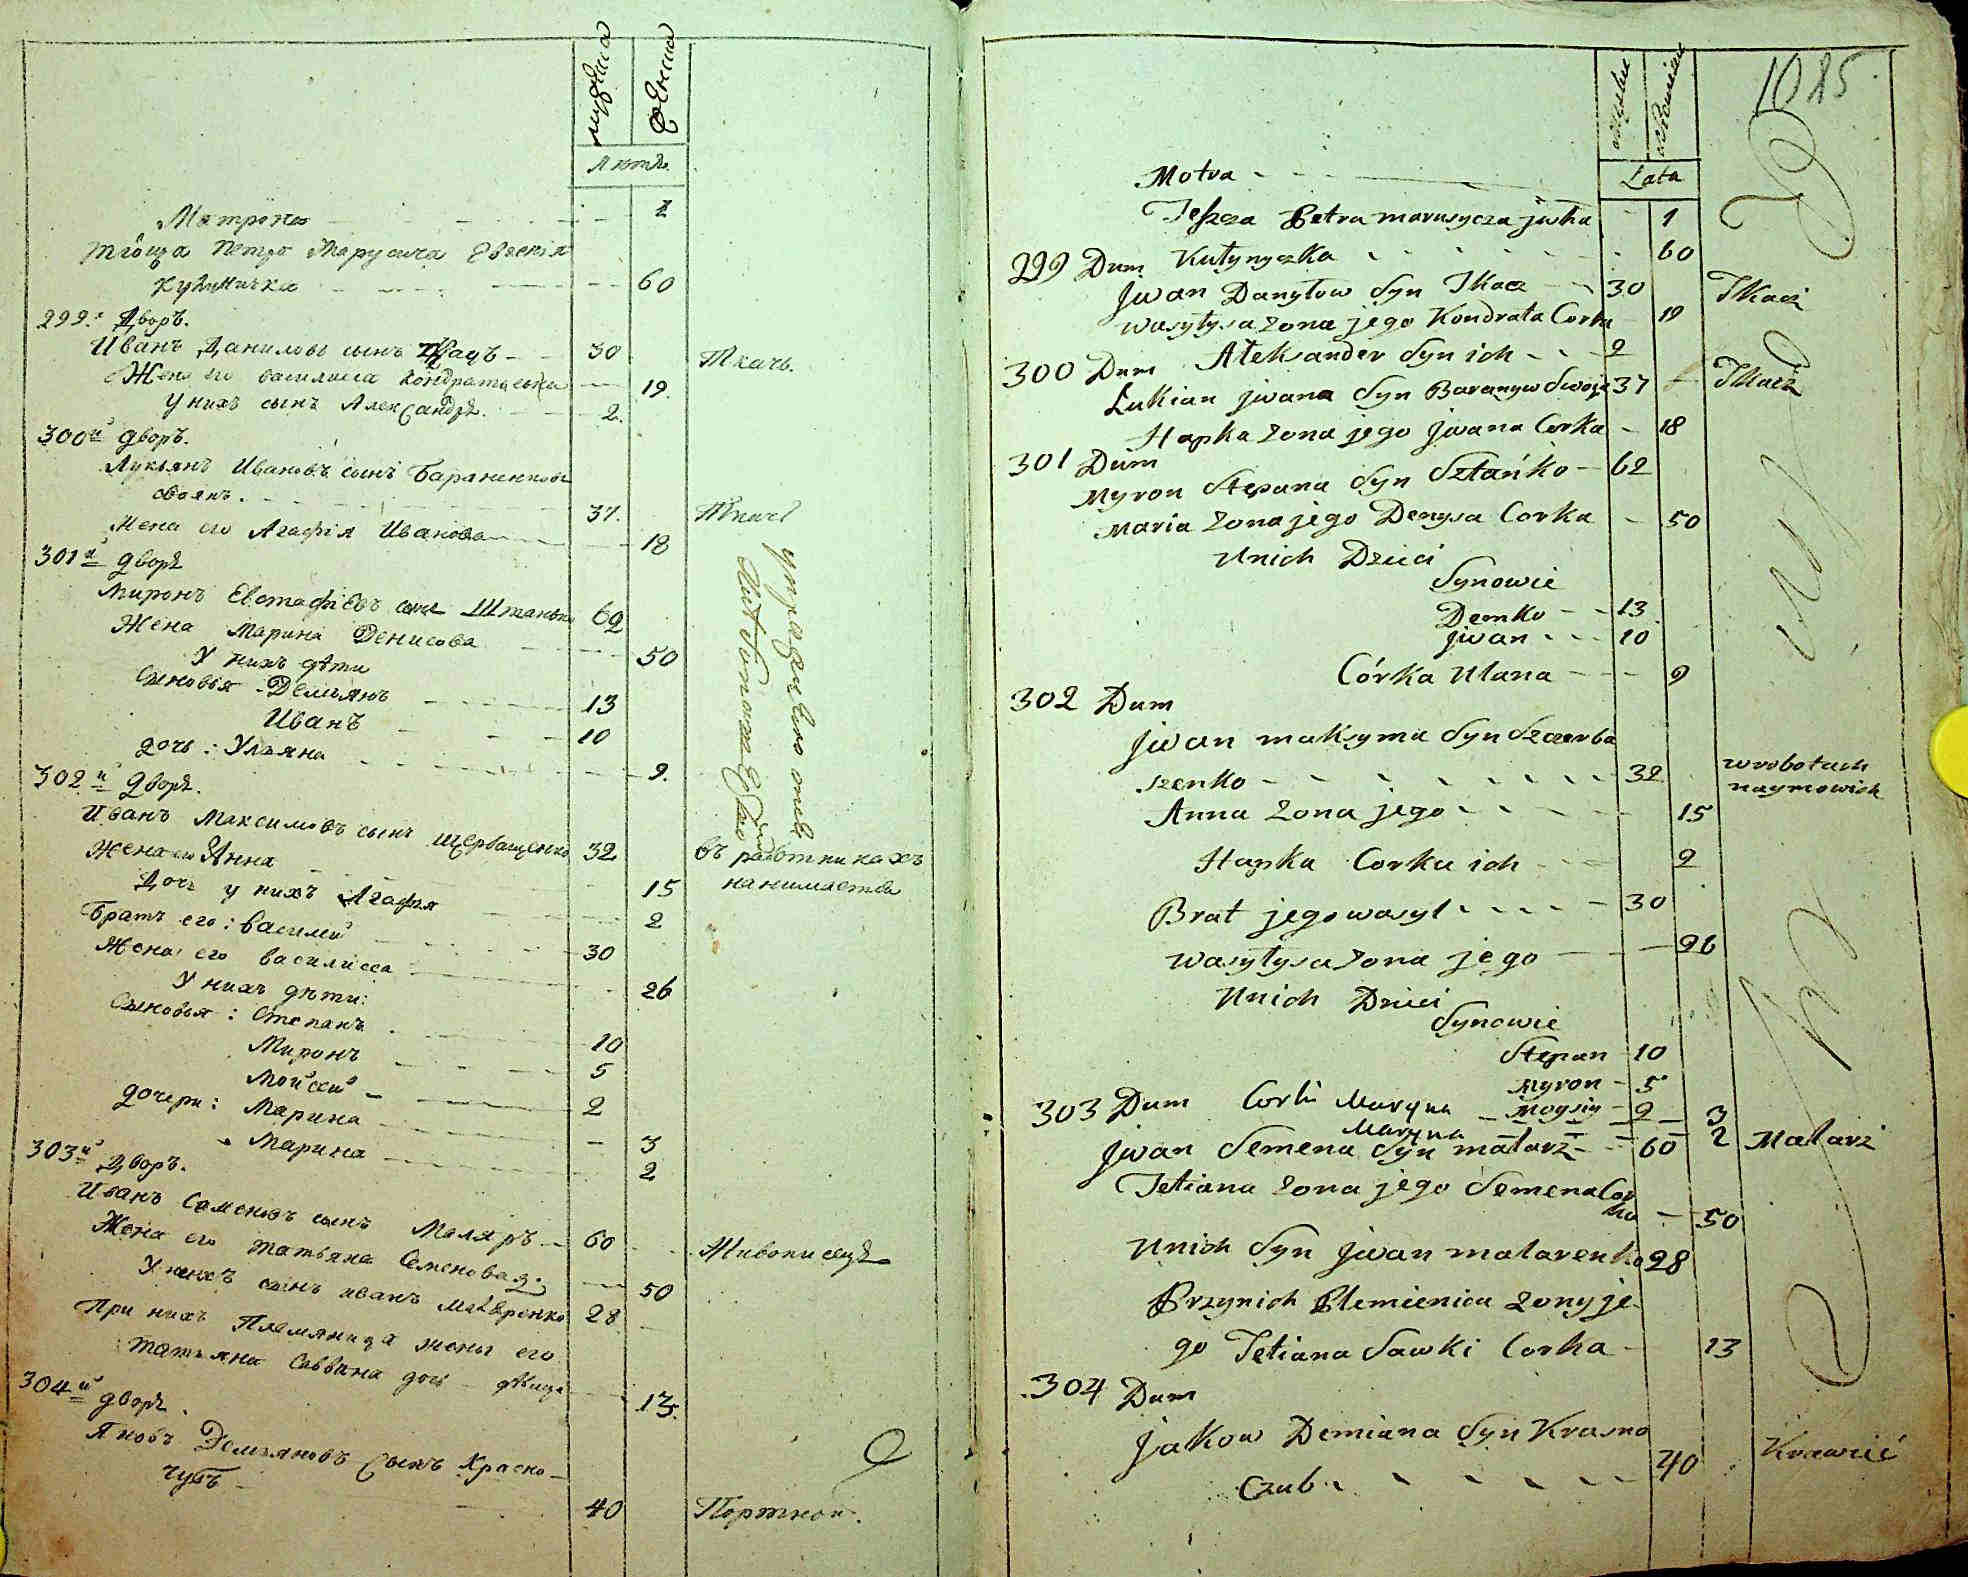 мужеска
женска
Лѣта
Матрона 1
тіоща Петра Марусича Евдокія
Кулиничка 60
299.й Дворъ.
Иванъ Даниловъ сынъ Ткачъ 30 Ткачъ.
Жена его василисса Кондратьевна 19.
У нихъ сынъ Александръ. 2.
300й дворъ.
Лукьянъ Ивановъ сынъ Бараненковъ
своякъ. 37. Ткачъ
Жена его Агафія Иванова 18
301й дворъ
Миронъ Евстафіевъ сынъ Штанько 62
Жена Марина Денисова 50
У нихъ дѣти
Сыновья: Демьянъ 13
Иванъ 10
дочь: Ульяна 9.
302й дворъ.
Иванъ Максимовъ сынъ Щербащенко 32 въ работникахъ
нанимается
Жена его Анна 15
Дочь у нихъ Агафія 2
Братъ его: Василий 30
Жена его василисса 26
У нихъ дѣти:
Сыновья: Степанъ 10
Миронъ 5
Мойсей 2
дочери: Марина 3
Марина 2
303й Дворъ.
Иванъ Семеновъ сынъ Маляръ 60 Живописецъ
Жена его татьяна Семеновая 50
У нихъ сынъ иванъ Маляренко 28
При нихъ Племяница жены его
татьяна Саввина дочь дѣвица 13.
304й дворъ.
Яковъ Демьяновъ сынъ Красно-
чубъ 40 Портной.
1025
Męskie
Lata
Motra 1
Teszcza Petra marusycza jwha
Kułynyczka 60
299 Dum
Jwan Danyłow Syn Tkacz 30 Tkacz
wasyłysa żona jego Kondrata Corka 19
Ałeksander Syn ich 2
300 Dum
Łukian jwana Syn Baranyw Swojak 37 Tkacz
Hapka żona jego jwana Corka 18
301 Dum
Myron Stepana Syn Sztańko 62
Maria żona jego Denysa Corka 50
Unich Dzieci
Synowie
Demko 13
Jwan 10
Córka Ulana 9
302 Dum
Jwan maksyma Syn Szczerba
szenko 32 w robotach
naymowich
Anna żona jego 15
Hapka Corka ich 2
Brat jego wasyl 30
wasyłysa żona jego 26
Unich Dzieci
Synowie
Stepan 10
Myron 5
Moysiy 2
303 Dum Corki Maryna 3
Maryna 2
Jwan Semena Syn malarz 60 Malarz
Tetiana żona jego Semena Cor
ka 50
Unich Syn Jwan malarenko 28
Przynich Plemienica żony je
go Tetiana Sawki Corka 13
304 Dum
Jakow Demiana Syn Krasno
czub 40 Krawiec